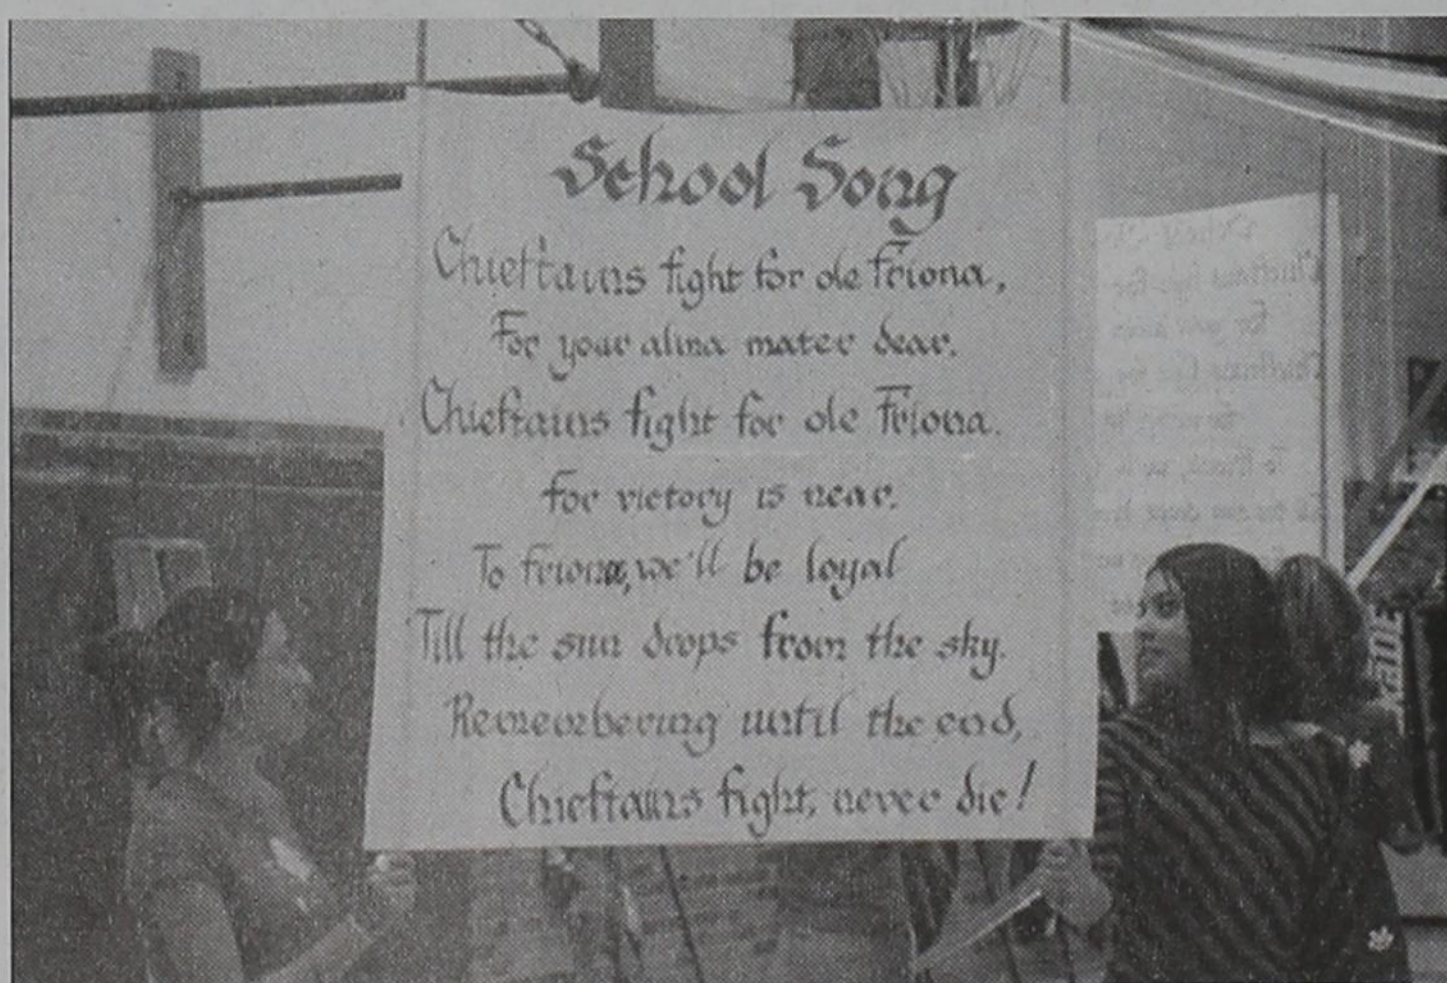 School Song
Chieftains fight for ole Friona,
For your alma mater dear.
Chieftains fight for ole Friona.
For victory is near.
To Friona, we'll be loyal
Till the sun drops from the sky.
Remembering until the end,
Chieftains fight, never die!